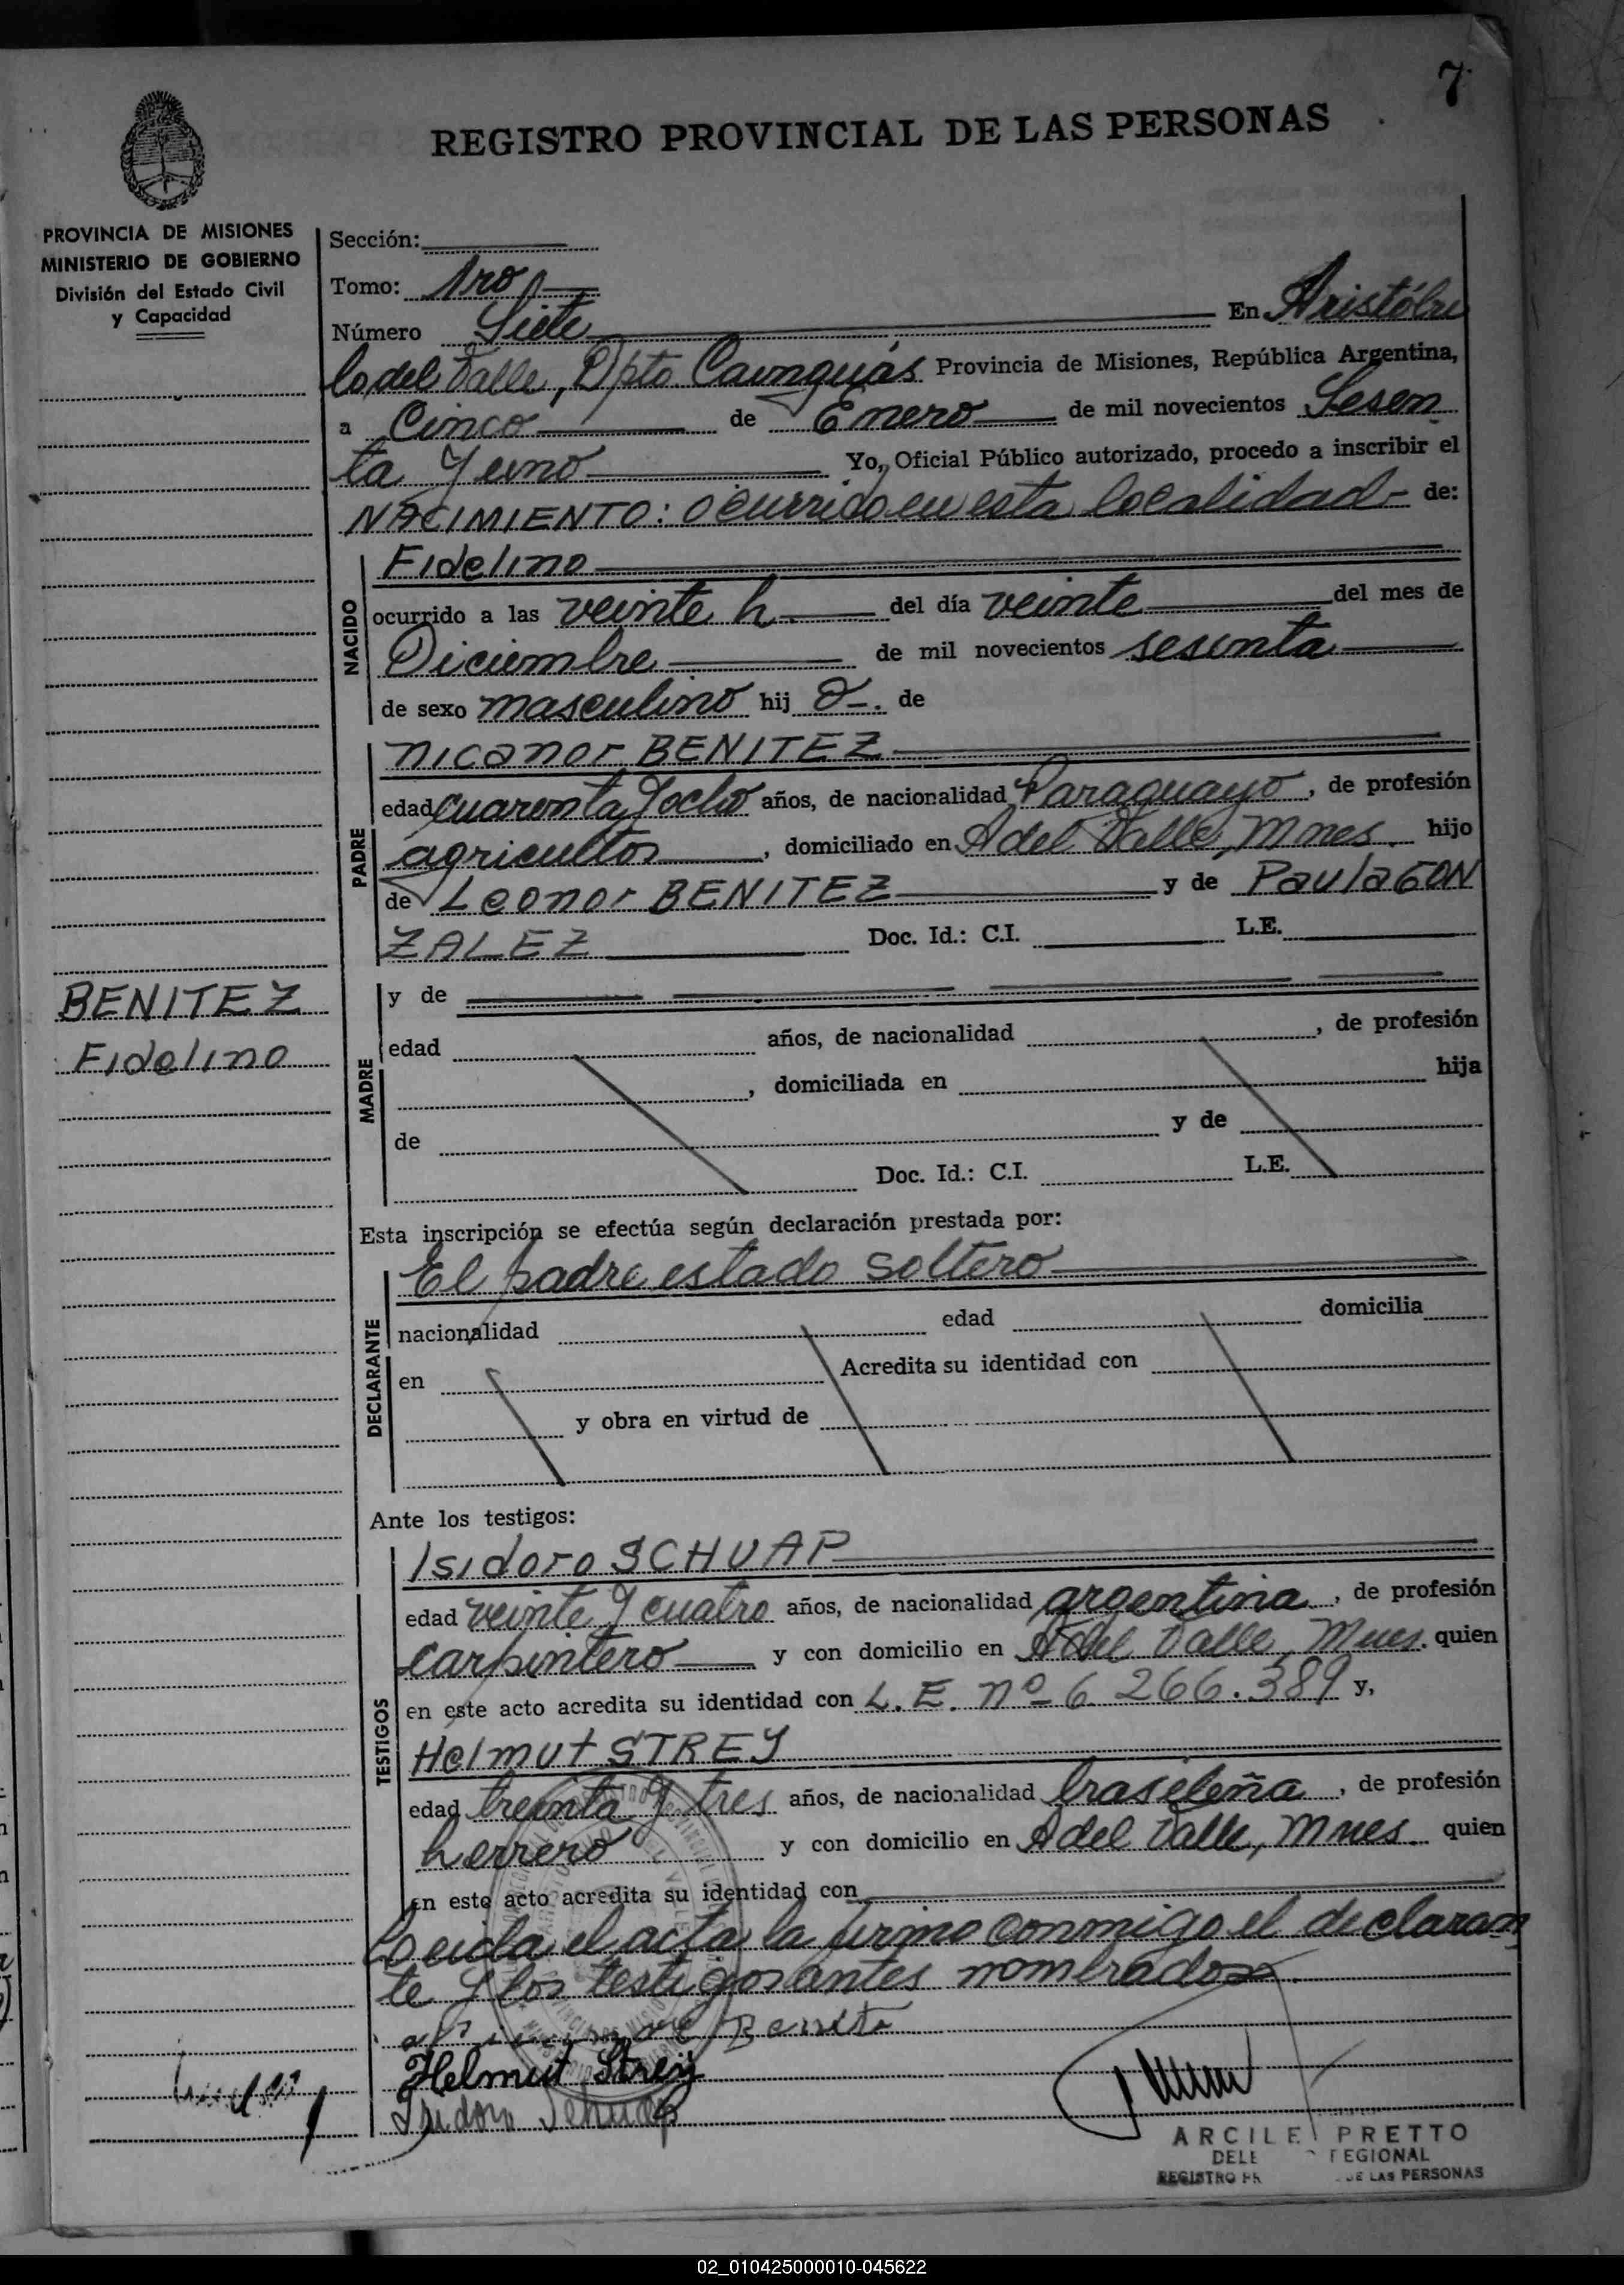 7
REGISTRO PROVINCIAL DE LAS PERSONAS
PROVINCIA DE MISIONES
MINISTERIO DE GOBIERNO
División del Estado Civil
y Capacidad
Sección:
Tomo: 1ro
Número Siete En Aristóbu
lo del Valle, Dpto Caunguás Provincia de Misiones, República Argentina,
a Cinco de Enero de mil novecientos Sesen
ta y uno Yo, Oficial Público autorizado, procedo a inscribir el
NACIMIENTO: ocurrido en esta localidad - de:
NACIDO
Fidelino
ocurrido a las veinte h. del día veinte del mes de
Diciembre de mil novecientos sesenta
de sexo masculino hij o-. de
PADRE
Nicanor BENITEZ
edad cuarenta y ocho años, de nacionalidad Paraguayo, de profesión
agricultor, domiciliado en A del Valle, Mnes. hijo
de Leonor BENITEZ y de Paula GON
ZALEZ Doc. Id.: C.I. L.E.
BENITEZ
Fidelino
MADRE
y de
edad años, de nacionalidad , de profesión
, domiciliada en hija
de y de
Doc. Id.: C.I. L.E.
Esta inscripción se efectúa según declaración prestada por:
DECLARANTE
El padre estado soltero
nacionalidad edad domicilia
en Acredita su identidad con
y obra en virtud de
Ante los testigos:
TESTIGOS
Isidoro SCHUAP
edad veinte y cuatro años, de nacionalidad argentina, de profesión
carpintero y con domicilio en A del Valle, Mnes. quien
en este acto acredita su identidad con L.E. nº 6.266.389 y,
Helmut STREY
edad treinta y tres años, de nacionalidad brasileña, de profesión
herrero y con domicilio en A del Valle, Mnes. quien
en este acto acredita su identidad con
Leida el acta la firmo conmigo el declaran
te y los testigos antes nombrados.
Benite
Helmut Strey
Isidoro Schuap
ARCILE PRETTO
DELE REGIONAL
REGISTRO PR DE LAS PERSONAS
02_010425000010-045622